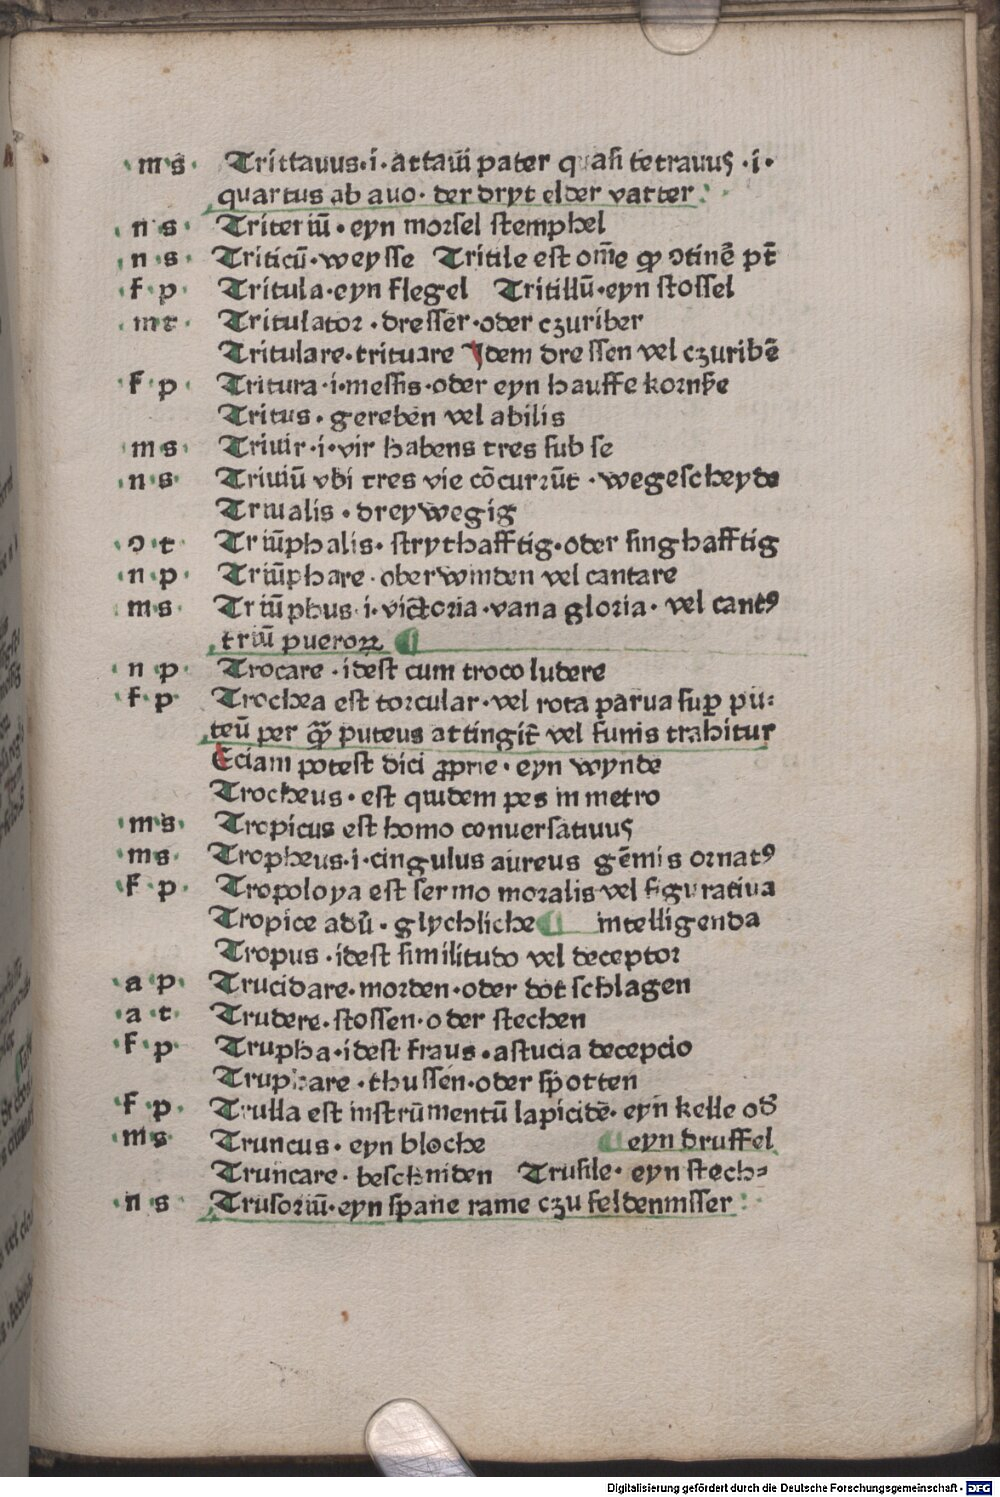 m s · Trittauus · i · attaui͂ pater quaſi tetrauuſ · i ·
quartus ab auo · der dryt elder vatter
n s · Triteriu͂ · eyn morſel ſtemphel
n s · Triticū · weyſſe Tritile eſt om̄e ꝙ ꝯtinē pt̄
f p · Tritula · eyn flegel Tritillū · eyn ſtoſſel
m t · Tritulator · dreſſer · oder czuriber
Tritulare · trituare Idem dreſſen vel czuribē
f p · Tritura · i · meſſis · oder eyn hauffe korns
Tritus · gereben vel abilis
m s · Triuir · i · vir habens tres ſub ſe
n s · Triuiū vbi tres vie cōcurrūt · wegeſcheyde
Triuialis · dreywegig
o t · Triūphalis · ſtrythafftig · oder ſinghafftig
n p · Triūphare · oberwinden vel cantare
m s · Triūphus · i · victoria · vana gloria · vel cantꝰ
triū pueroꝝ
n p · Trocare · ideſt cum troco ludere
f p · Trochea eſt torcular · vel rota parua ſuꝑ pu⸗
teū per quā puteus attingit̄ vel funis trahitur
Eciam poteſt dici ꝓprie · eyn wynde
Trocheus · eſt quidem pes in metro
m s · Tropicus eſt homo conuerſatiuuſ
m s · Tropheus · i · cingulus aureus gēmis ornatꝰ
f p · Tropoloya eſt ſermo moralis vel figuratiua
Tropice adū · glychliche intelligenda
Tropus · ideſt ſimilitudo vel deceptor
a p · Trucidare · morden · oder dot ſchlagen
a t · Trudere · ſtoſſen · oder ſtechen
f p · Trupha · ideſt fraus · aſtucia decepcio
Truphare · thuſſen · oder ſpotten
f p · Trulla eſt inſtrūmentū lapicidē · eyn kelle od̄
m s · Truncus · eyn bloche eyn druffel
Truncare · beſchniden Truſile · eyn ſtech⸗
n s · Truſoriū · eyn ſpane rame czu feldenmſſer
Digitalisierung gefördert durch die Deutsche Forschungsgemeinschaft - DFG